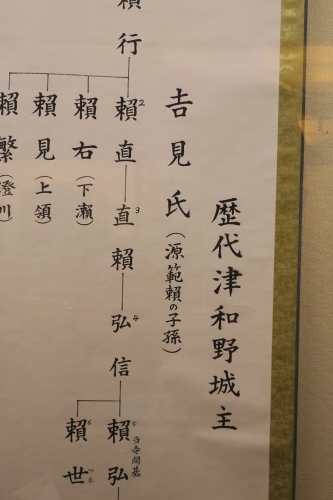 歴代津和野城主
吉見氏（源範頼の子孫）
頼行
頼²直
直³頼
弘⁴信
頼⁵弘 当寺開基
頼⁶世 ツネ
頼右（下瀬）
頼見（上領）
頼繁（澄川）